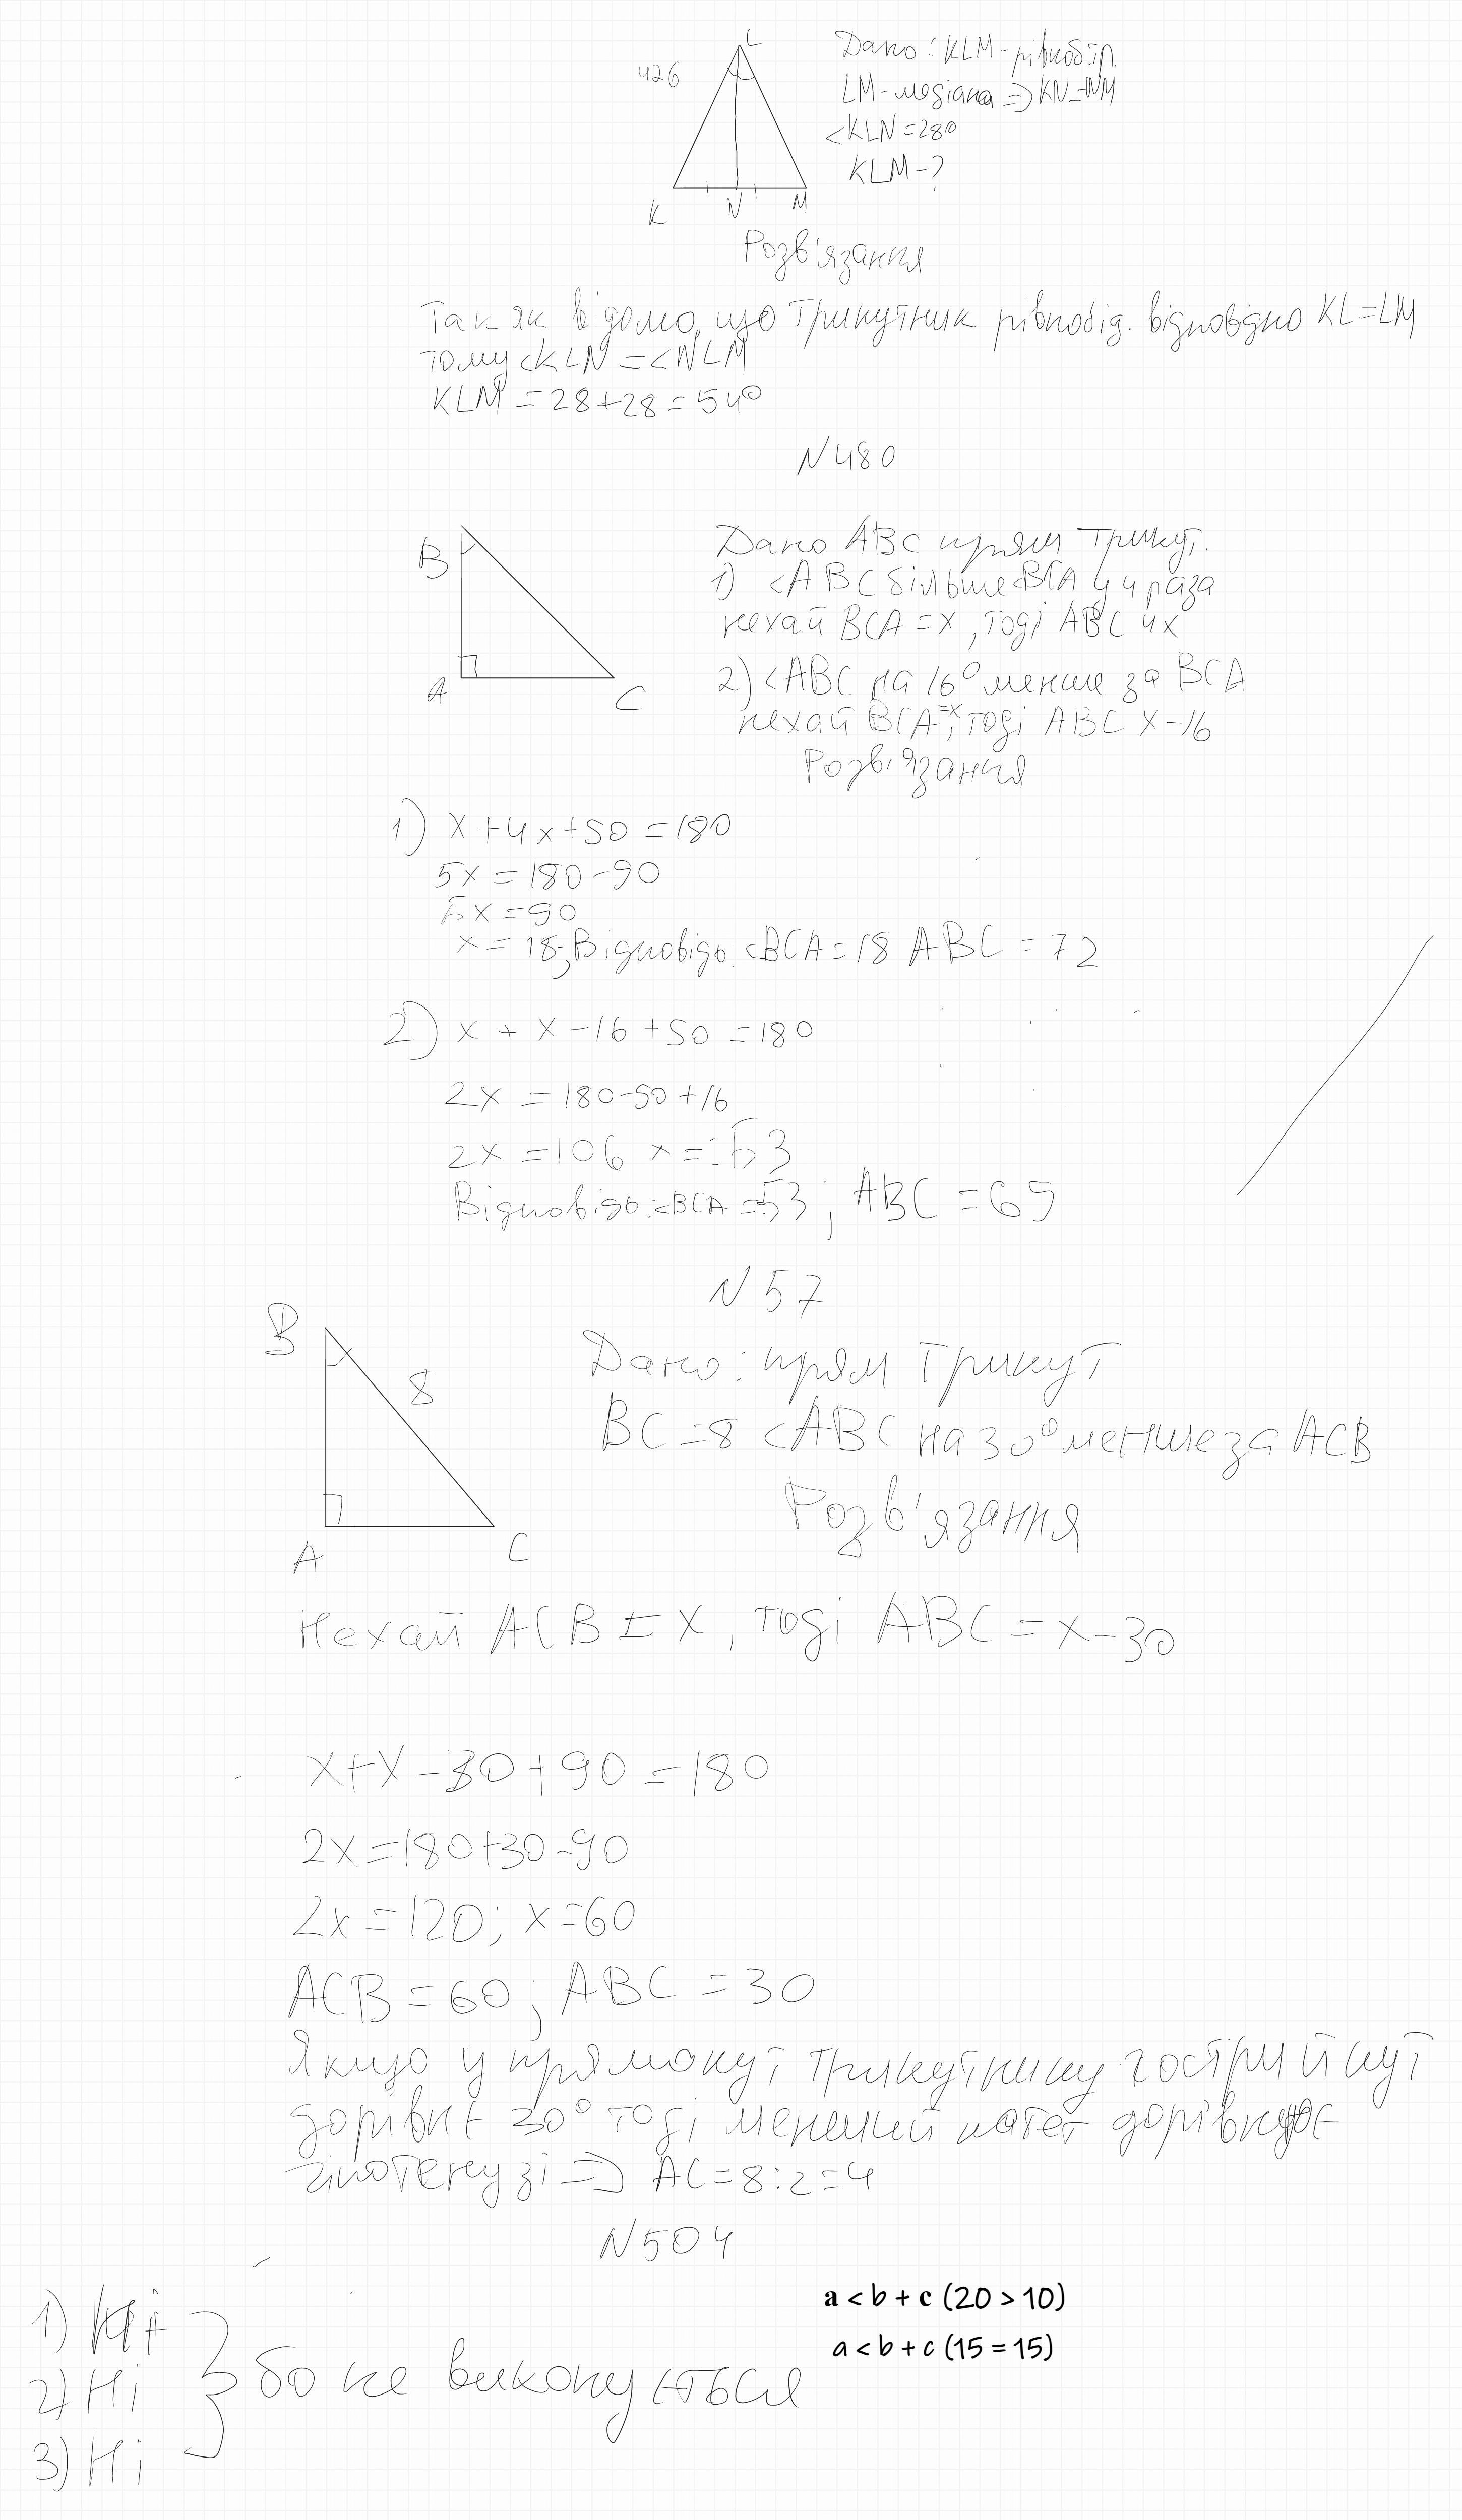 426
L
K
N
M
Дано: KLM-рівноб.тр.
LM-медіана => KN=NM
<KLN=28°
KLM-?
Розв'язання
Так як відомо, що трикутник рівнобід. відповідно KL=LM
тому <KLN=<NLM
KLM=28+28=54°
N480
B
A
C
Дано ABC прям трикут.
1) <ABC більше <BCA у 4 раза
нехай BCA=x, тоді ABC 4x
2) <ABC на 16° менше за BCA
нехай BCA=x, тоді ABC x-16
Розв'язання
1) x+4x+90=180
5x=180-90
5x=90
x=18; Відповідь: <BCA=18 ABC=72
2) x+x-16+90=180
2x=180-90+16
2x=106 x=53
Відповідь: <BCA=53; ABC=69
N57
B
8
A
C
Дано: прям трикут
BC=8 <ABC на 30° менше за ACB
Розв'язання
Нехай ACB=x, тоді ABC=x-30
x+x-30+90=180
2x=180+30-90
2x=120; x=60
ACB=60; ABC=30
Якщо у прямокут трикутнику гострий кут
дорівн є 30° тоді менший катет дорівнює
гіпотенузі => AC=8:2=4
N504
a < b + c (20 > 10)
a < b + c (15 = 15)
1) Ні
2) Ні
3) Ні
бо не виконується